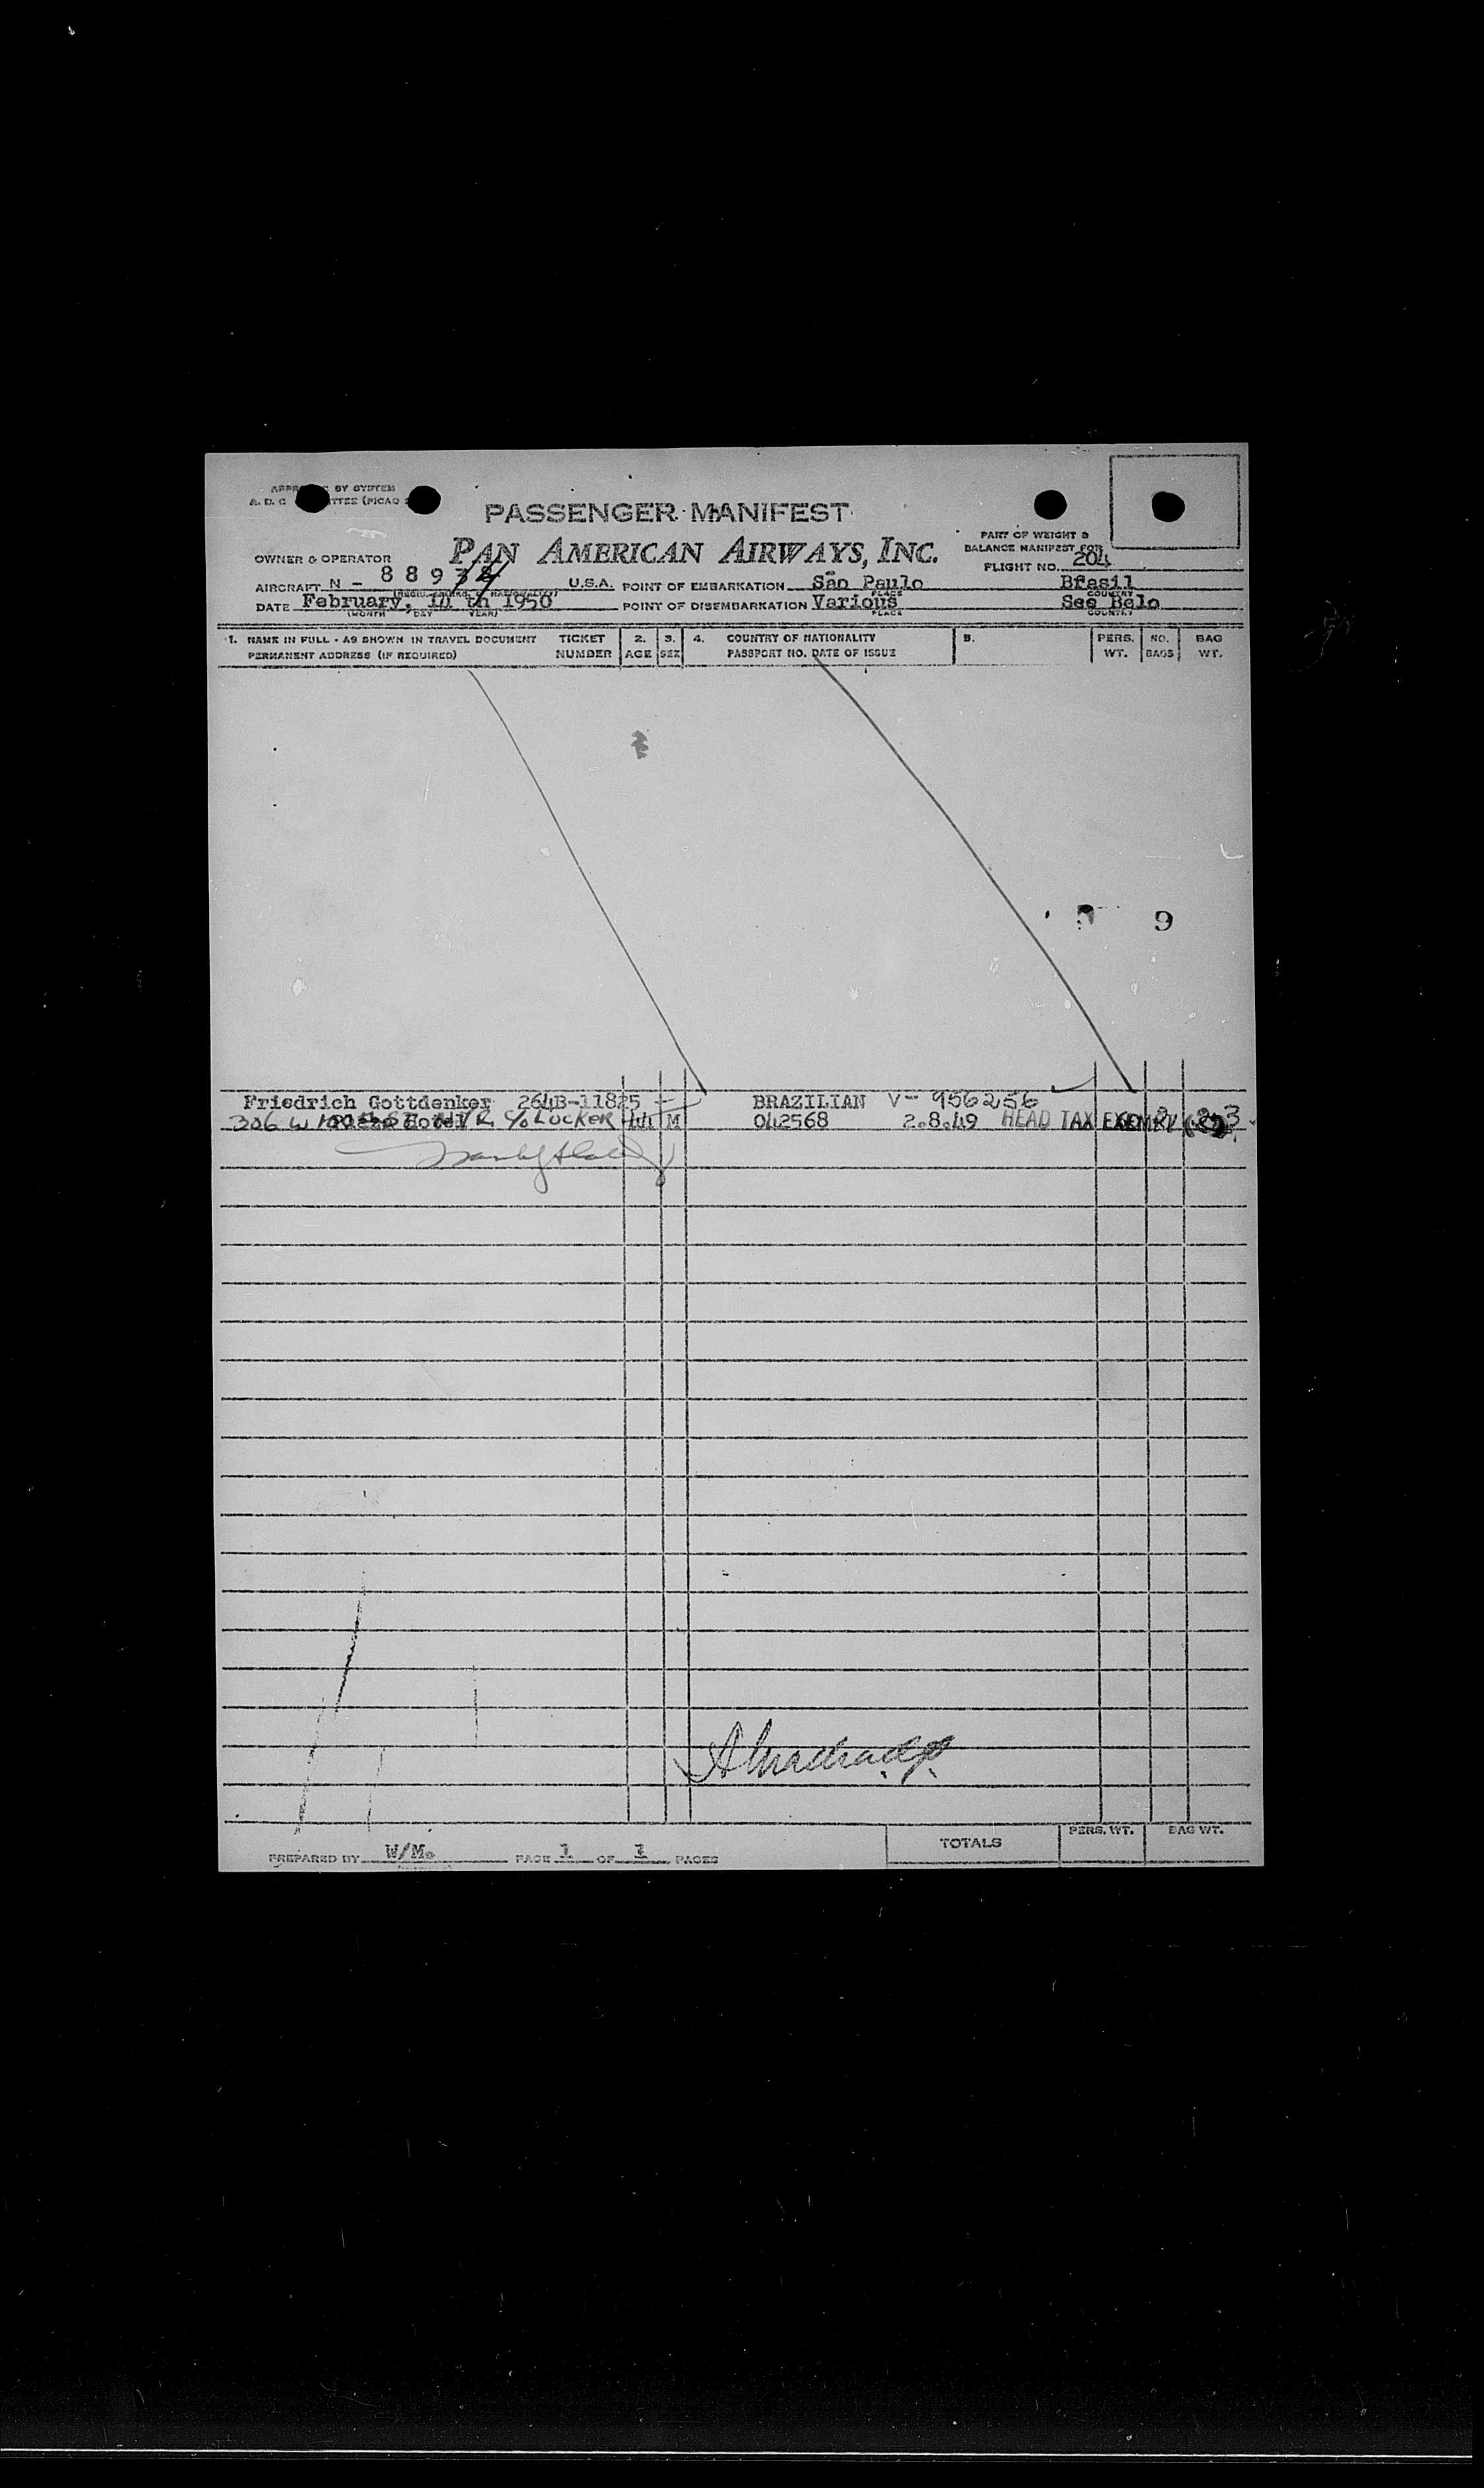 PASSENGER MANIFEST
PAN AMERICAN AIRWAYS, INC.
PART OF WEIGHT &
BALANCE MANIFEST FOR
FLIGHT NO. 204
OWNER & OPERATOR
AIRCRAFT N - 8 8 9 U.S.A. POINT OF EMBARKATION São Paulo Brasil
PLACE COUNTRY
DATE February, th 1950 POINT OF DISEMBARKATION Various See Belo
(MONTH DAY YEAR) PLACE COUNTRY
1. NAME IN FULL - AS SHOWN IN TRAVEL DOCUMENT TICKET 2. 3. 4. COUNTRY OF NATIONALITY 5. PERS. NO. BAG
PERMANENT ADDRESS (IF REQUIRED) NUMBER AGE SEX PASSPORT NO. DATE OF ISSUE WT. BAGS WT.
9
Friedrich Gottdenker 264B-11825 BRAZILIAN V- 956256
306 W Hotel c/o LUCKER 44 M 042568 2.8.49 HEAD TAX EXEMPT 3
PREPARED BY W/M. PAGE 1 OF 1 PAGES TOTALS PERS. WT. BAG WT.